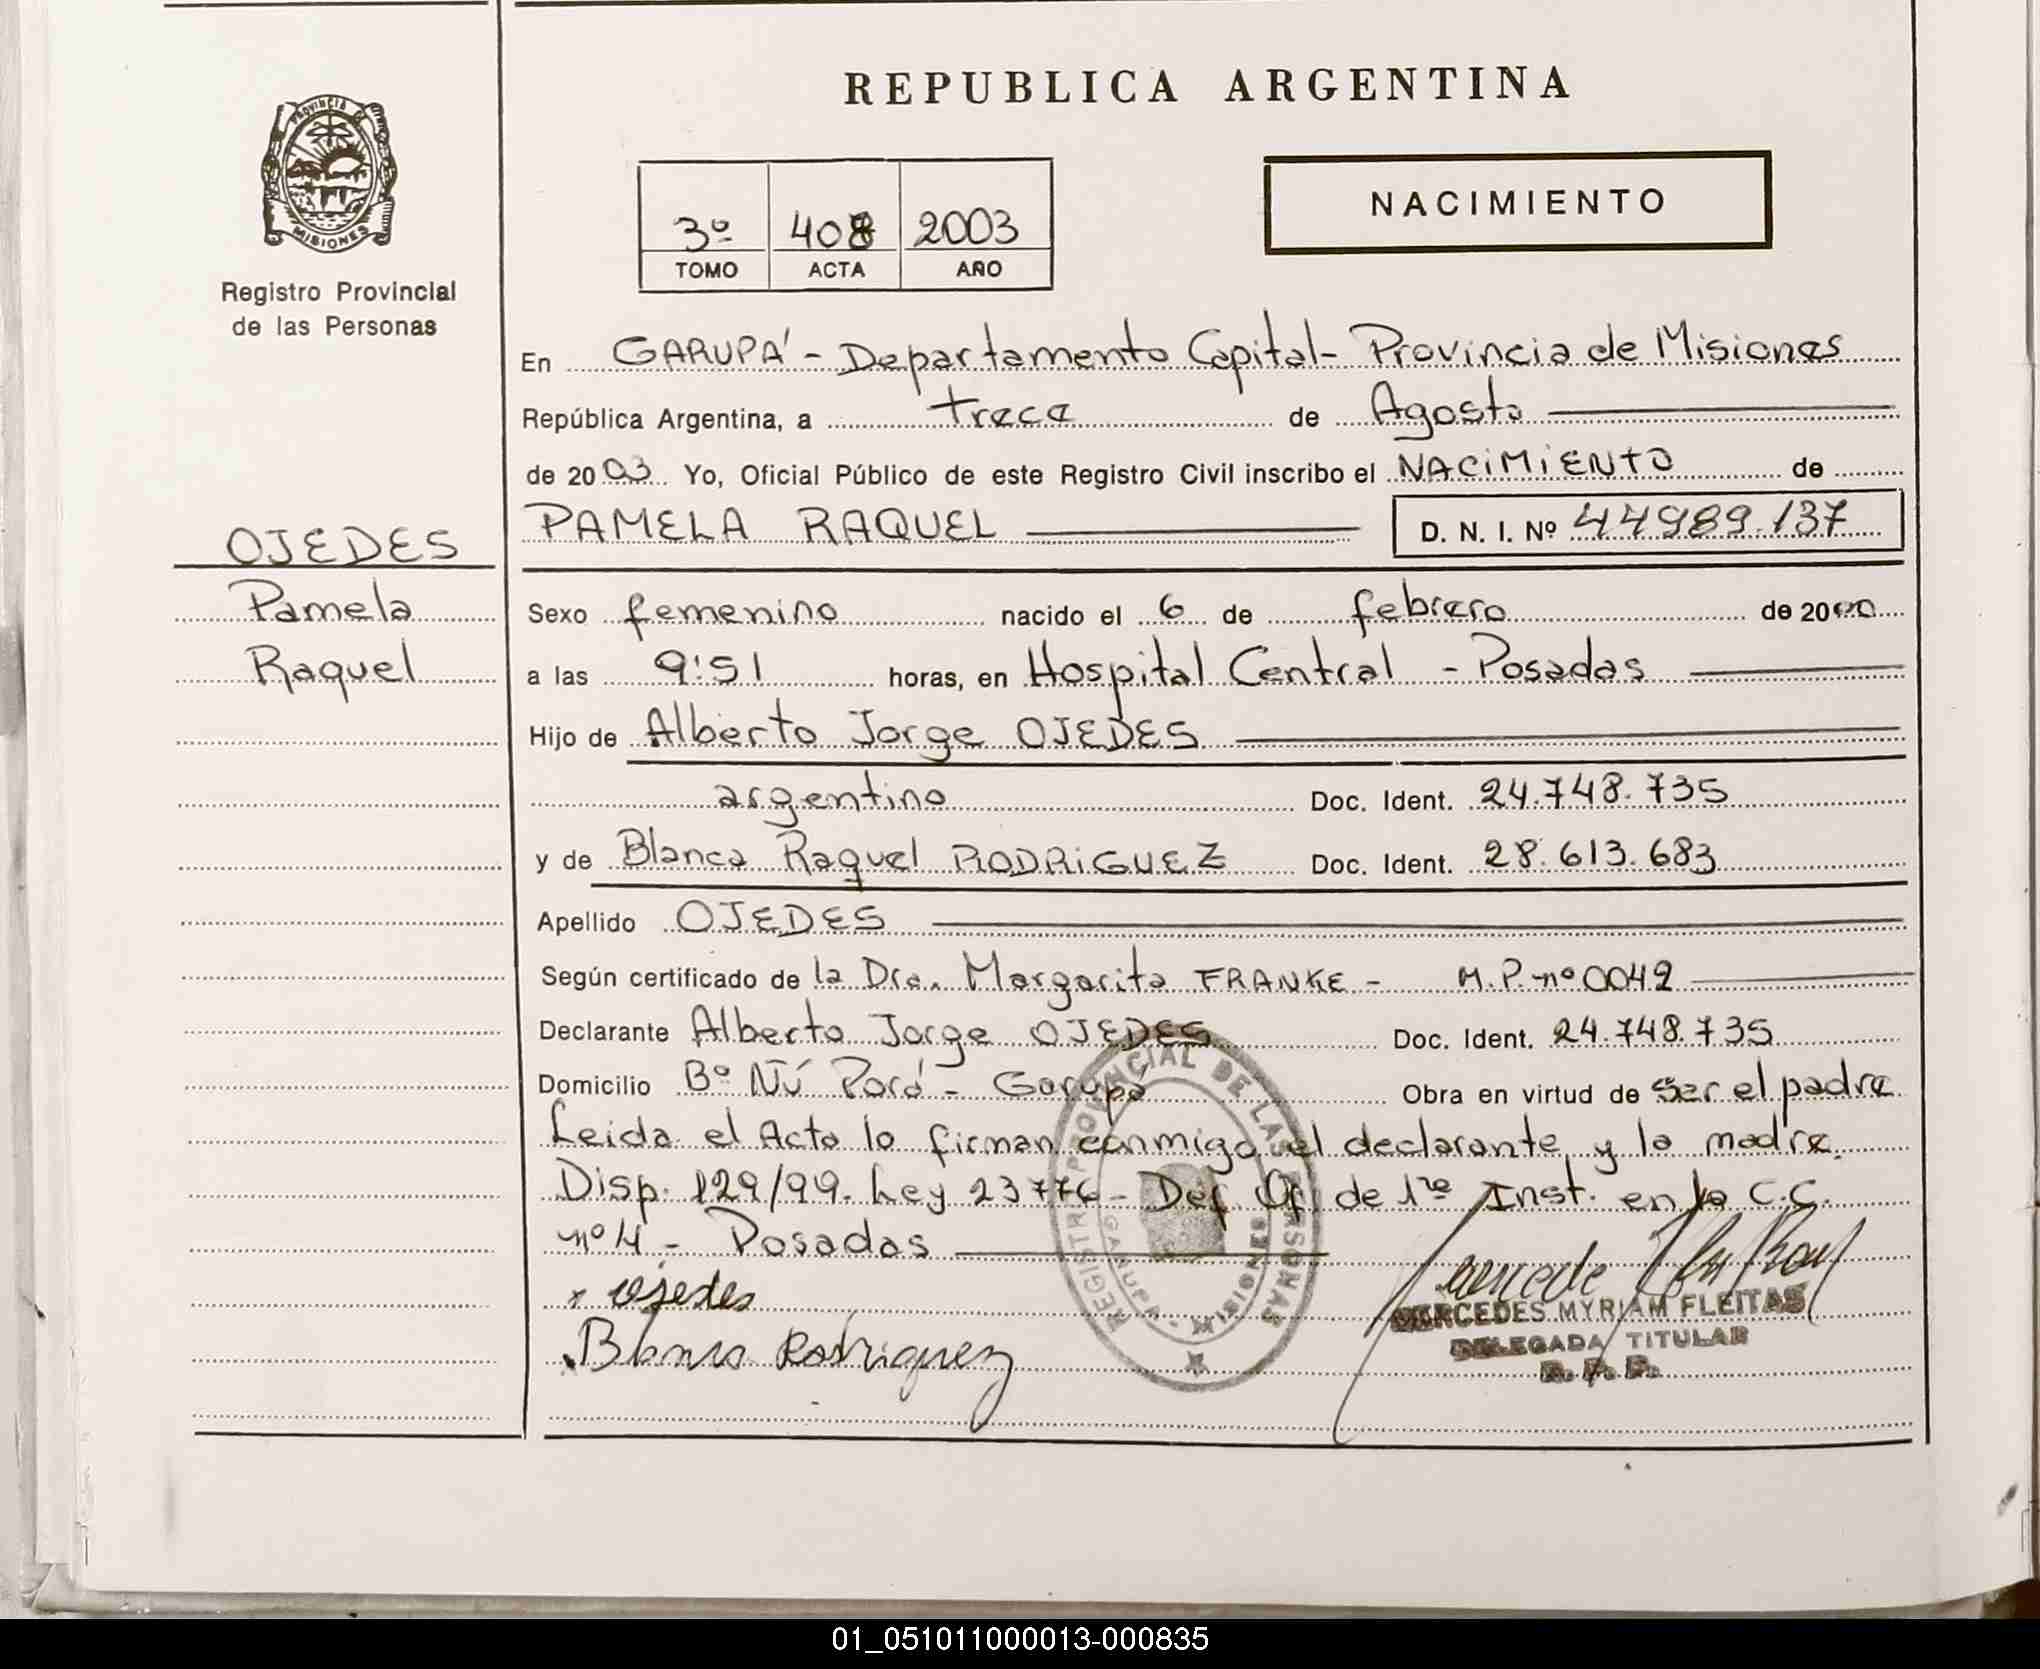 REPUBLICA ARGENTINA
PROVINCIA DE
MISIONES
Registro Provincial
de las Personas
3º 408 2003
TOMO ACTA AÑO
NACIMIENTO
En GARUPA' - Departamento Capital - Provincia de Misiones
República Argentina, a trece de Agosto
de 2003 Yo, Oficial Público de este Registro Civil inscribo el NACIMIENTO de
OJEDES
Pamela
Raquel
PAMELA RAQUEL D. N. I. Nº 44989.137
Sexo femenino nacido el 6 de febrero de 2000
a las 9:51 horas, en Hospital Central - Posadas
Hijo de Alberto Jorge OJEDES
argentino Doc. Ident. 24.748.735
y de Blanca Raquel RODRIGUEZ Doc. Ident. 28.613.683
Apellido OJEDES
Según certificado de la Dra. Margarita FRANKE - M.P. nº 0042
Declarante Alberto Jorge OJEDES Doc. Ident. 24.748.735
Domicilio Bº Ñú Porá - Garupá Obra en virtud de ser el padre
Leida el Acta la firman conmigo el declarante y la madre.
Disp. 129/99. Ley 23776 - Def. Of. de 1ra Inst. en lo C.C.
nº 4 - Posadas
REGISTRO PROVINCIAL DE LAS PERSONAS
GARUPA - MISIONES
x Ojedes
Blanca Rodriguez
MERCEDES MYRIAM FLEITAS
DELEGADA TITULAR
R. P. P.
01_051011000013-000835